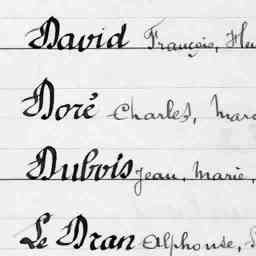 David François,
Doré Charles,
Dubois Jean, Marie,
Le Dran Alphonse,